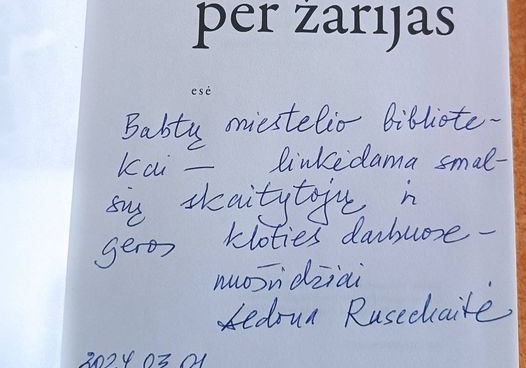 per žarijas
esė
Babtų miestelio bibliote-
kai — linkėdama smal-
sių skaitytojų ir
geros kloties darbuose –
nuoširdžiai
Aedona Rusechaitė
2024.03.01